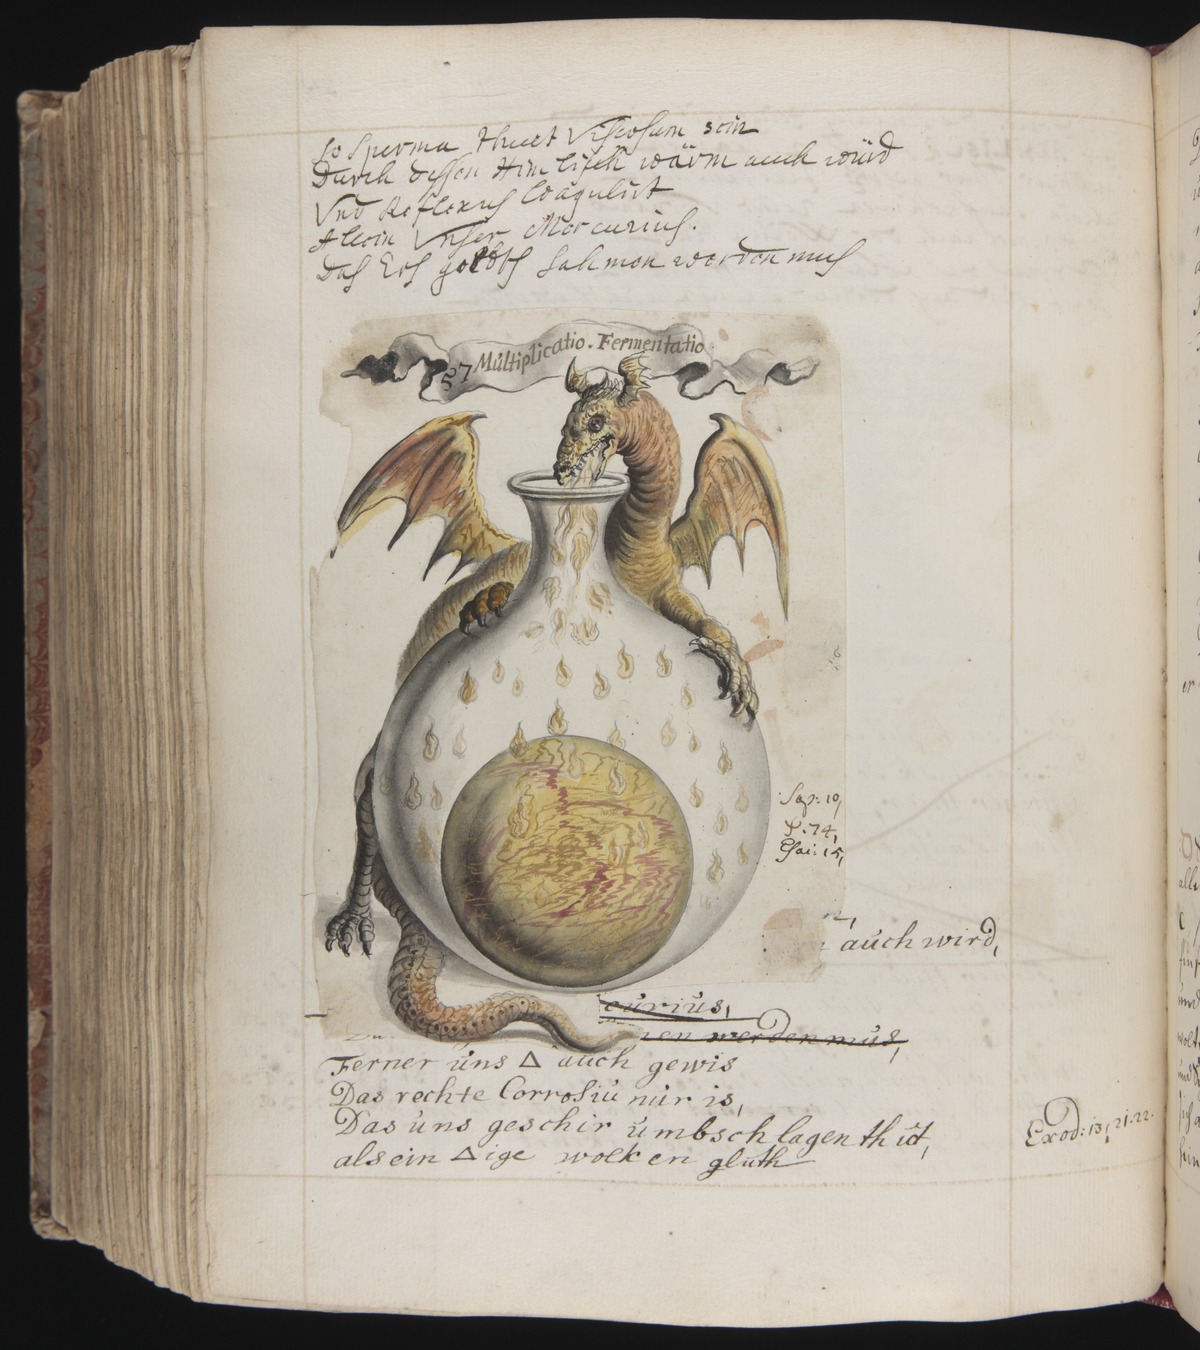 So Sperma thuet Viscosum sein
Durch dessen Himlisch wärm auch würd
Vnd Reflexus Coagulirt
Allein Vnser Mercurius.
Das Ers goldts Sahmen werden mus
57 Múltiplicatio. Fermentatio
Sap: 10,
74,
Esai: 15,
aúch wird,
cúriús,
nen werden mús,
Ferner úns △ aúch gewis
Das rechte Corrosiú núr is,
Das úns geschir úmbschlagen thút,
als ein △ige wolken glúth
Exod: 13, 21. 22.